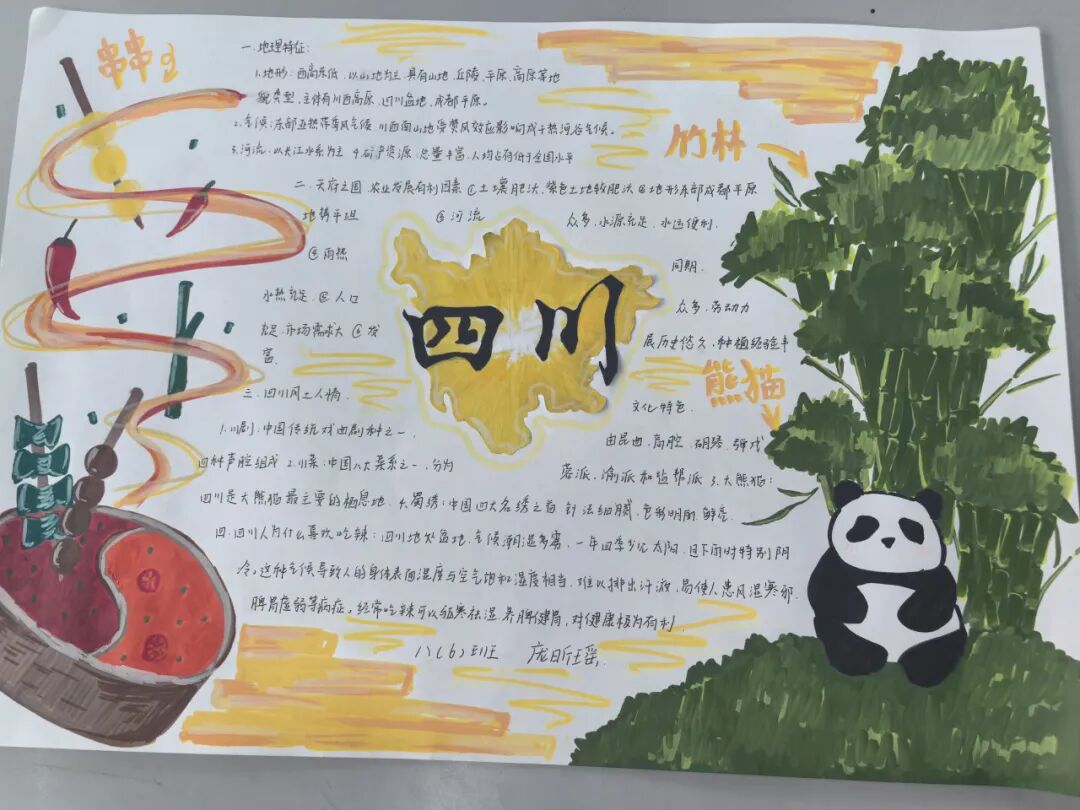 串串
一.地理特征:
1.地形:西高东低、以山地为主、具有山地、丘陵、平原、高原等地
貌类型,主体有川西高原、四川盆地、成都平原。
2.气候:东部亚热带季风气候 川西南山地受焚风效应影响成干热河谷气候。
3.河流:以长江水系为主 4.矿产资源:总量丰富,人均占有低于全国水平
竹林
二.天府之国 农业发展有利因素 ①土壤肥沃、紫色土地较肥沃 ②地形东部成都平原
地势平坦 ③河流 众多、水源充足、水运便利.
④雨热 同期.
水热充足. ⑤人口 众多,劳动力
充足.市场需求大 ⑥发 展历史悠久,种植经验丰
富.
四川
熊猫
三.四川风土人情. 文化特色.
1.川剧:中国传统戏曲剧种之一、 由昆曲,高腔、胡琴、弹戏
四种声腔组成 2.川菜:中国八大菜系之一,分为 蓉派、渝派和盐帮派 3.大熊猫:
四川是大熊猫最主要的栖息地. 4.蜀绣:中国四大名绣之首 针法细腻、色彩明丽、鲜亮.
四.四川人为什么喜欢吃辣:四川地处盆地、气候潮湿多雾,一年四季少见太阳,且下雨时特别阴
冷。这种气候导致人的身体表面湿度与空气饱和湿度相当,难以排出汗液,易使人患风湿寒邪.
脾胃虚弱等病症。经常吃辣可以驱寒祛湿、养脾健胃,对健康极为有利.
八(6)班 庞昕瑶.